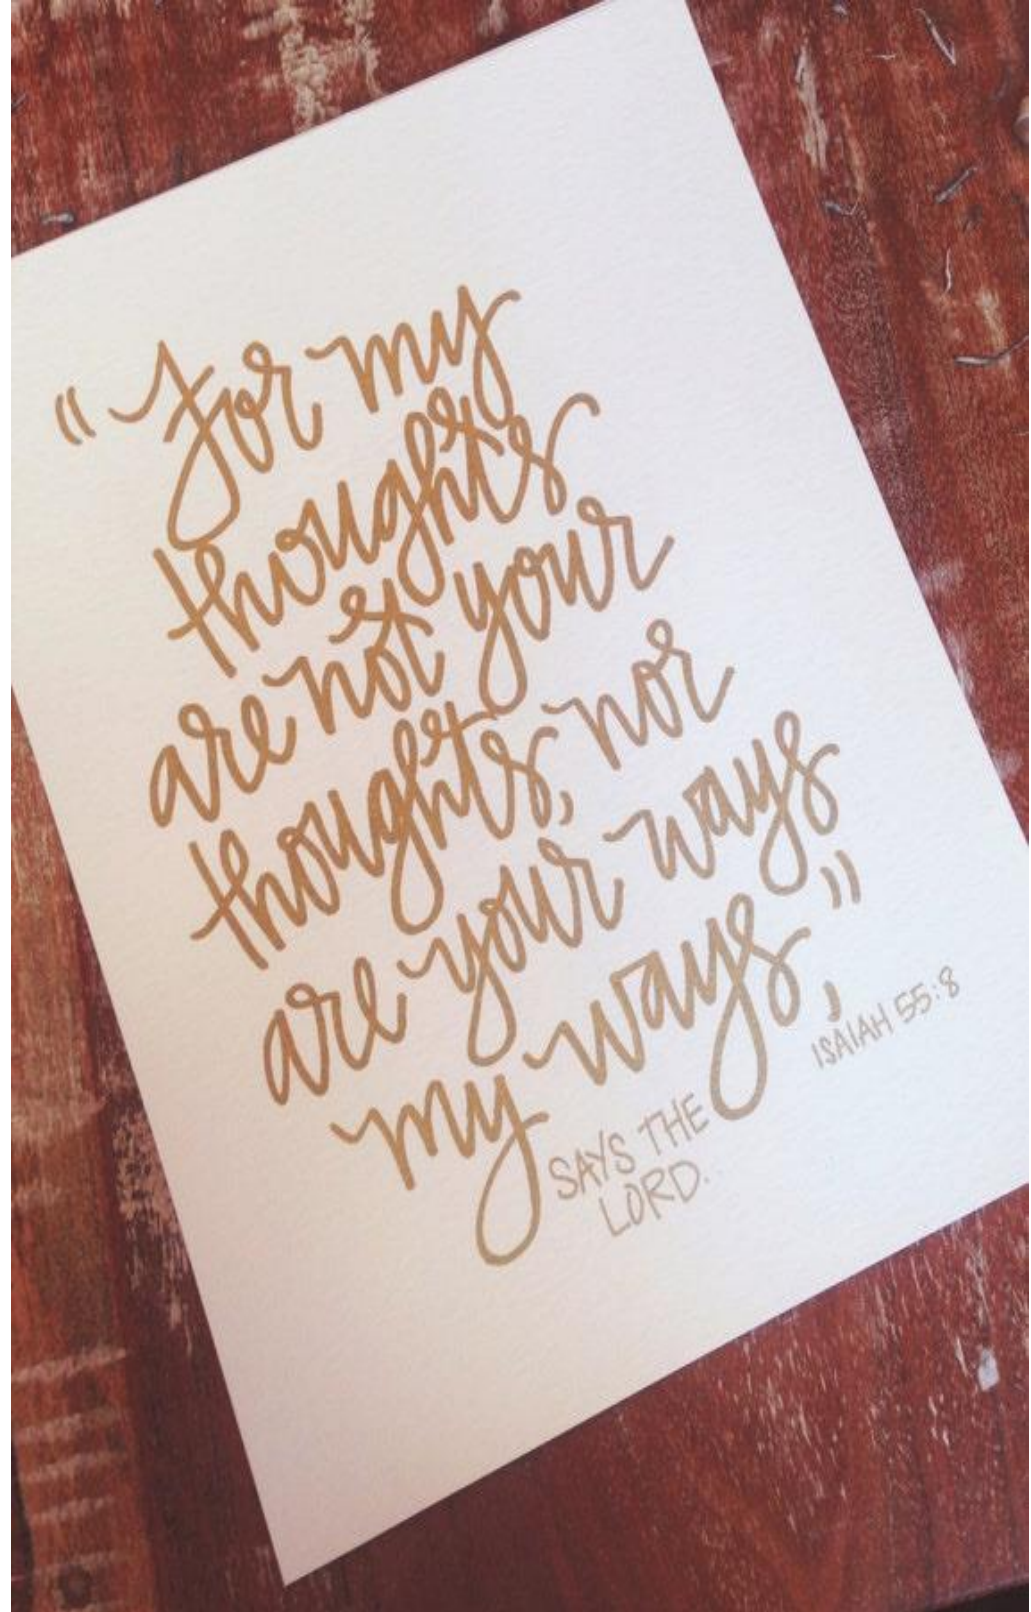 "For my
thoughts
are not your
thoughts, nor
are your ways
my ways,"
SAYS THE
LORD.
ISAIAH 55:8